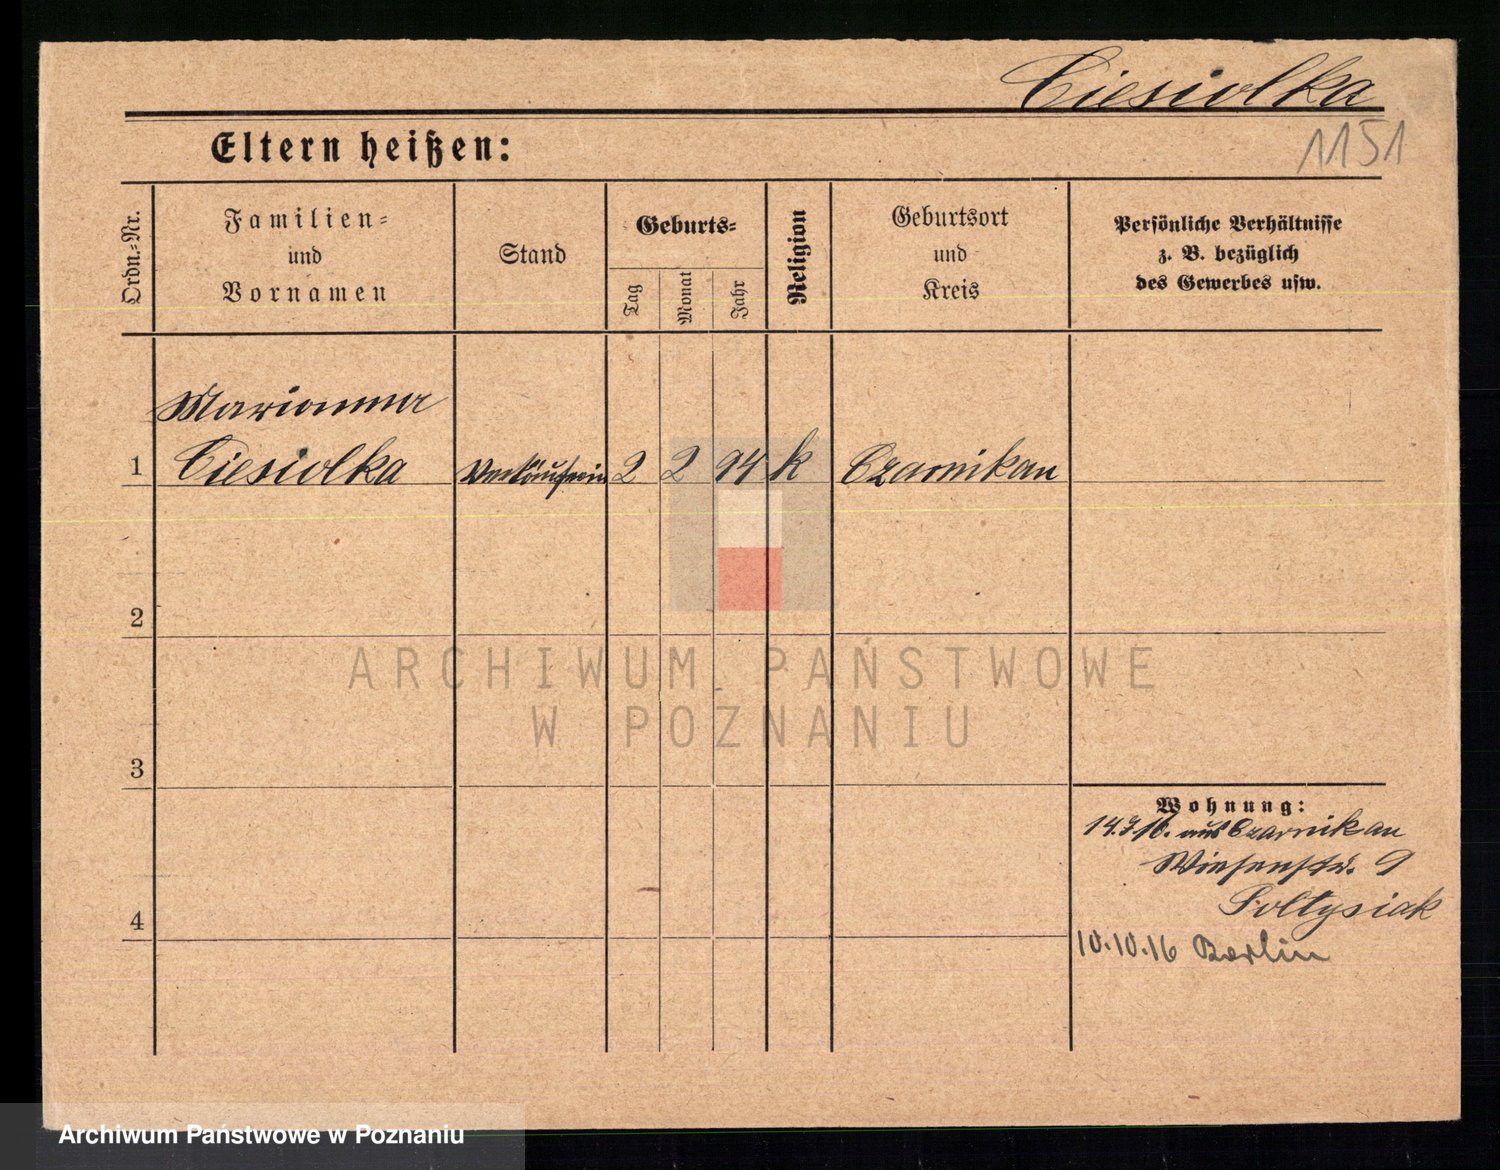 Ciesiolka
1151
Eltern heißen:
Ordn.-Nr.
Familien-
und
Vornamen
Stand
Geburts-
Tag
Monat
Jahr
Religion
Geburtsort
und
Kreis
Persönliche Verhältnisse
z. B. bezüglich
des Gewerbes usw.
Marianna
1 Ciesiolka Verkäuferin 2 2 94 k Czarnikau
2
3
4
Wohnung:
aus Czarnikau
Wiesenstr. 9
Soltysiak
10.10.16 Berlin
ARCHIWUM PAŃSTWOWE
W POZNANIU
Archiwum Państwowe w Poznaniu